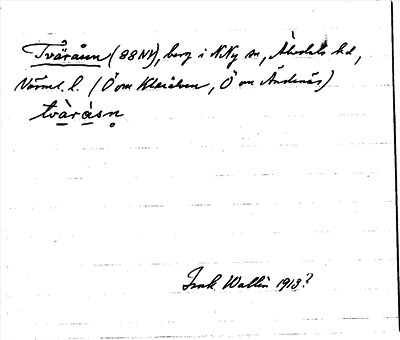 Tväråsen (88NV), berg i N. Ny sn, Älvdals hd,
Värml. l. (Ö om Klarälven, Ö om Ändenäs)
tvàrásn̥
Insk. Wallin 1913?